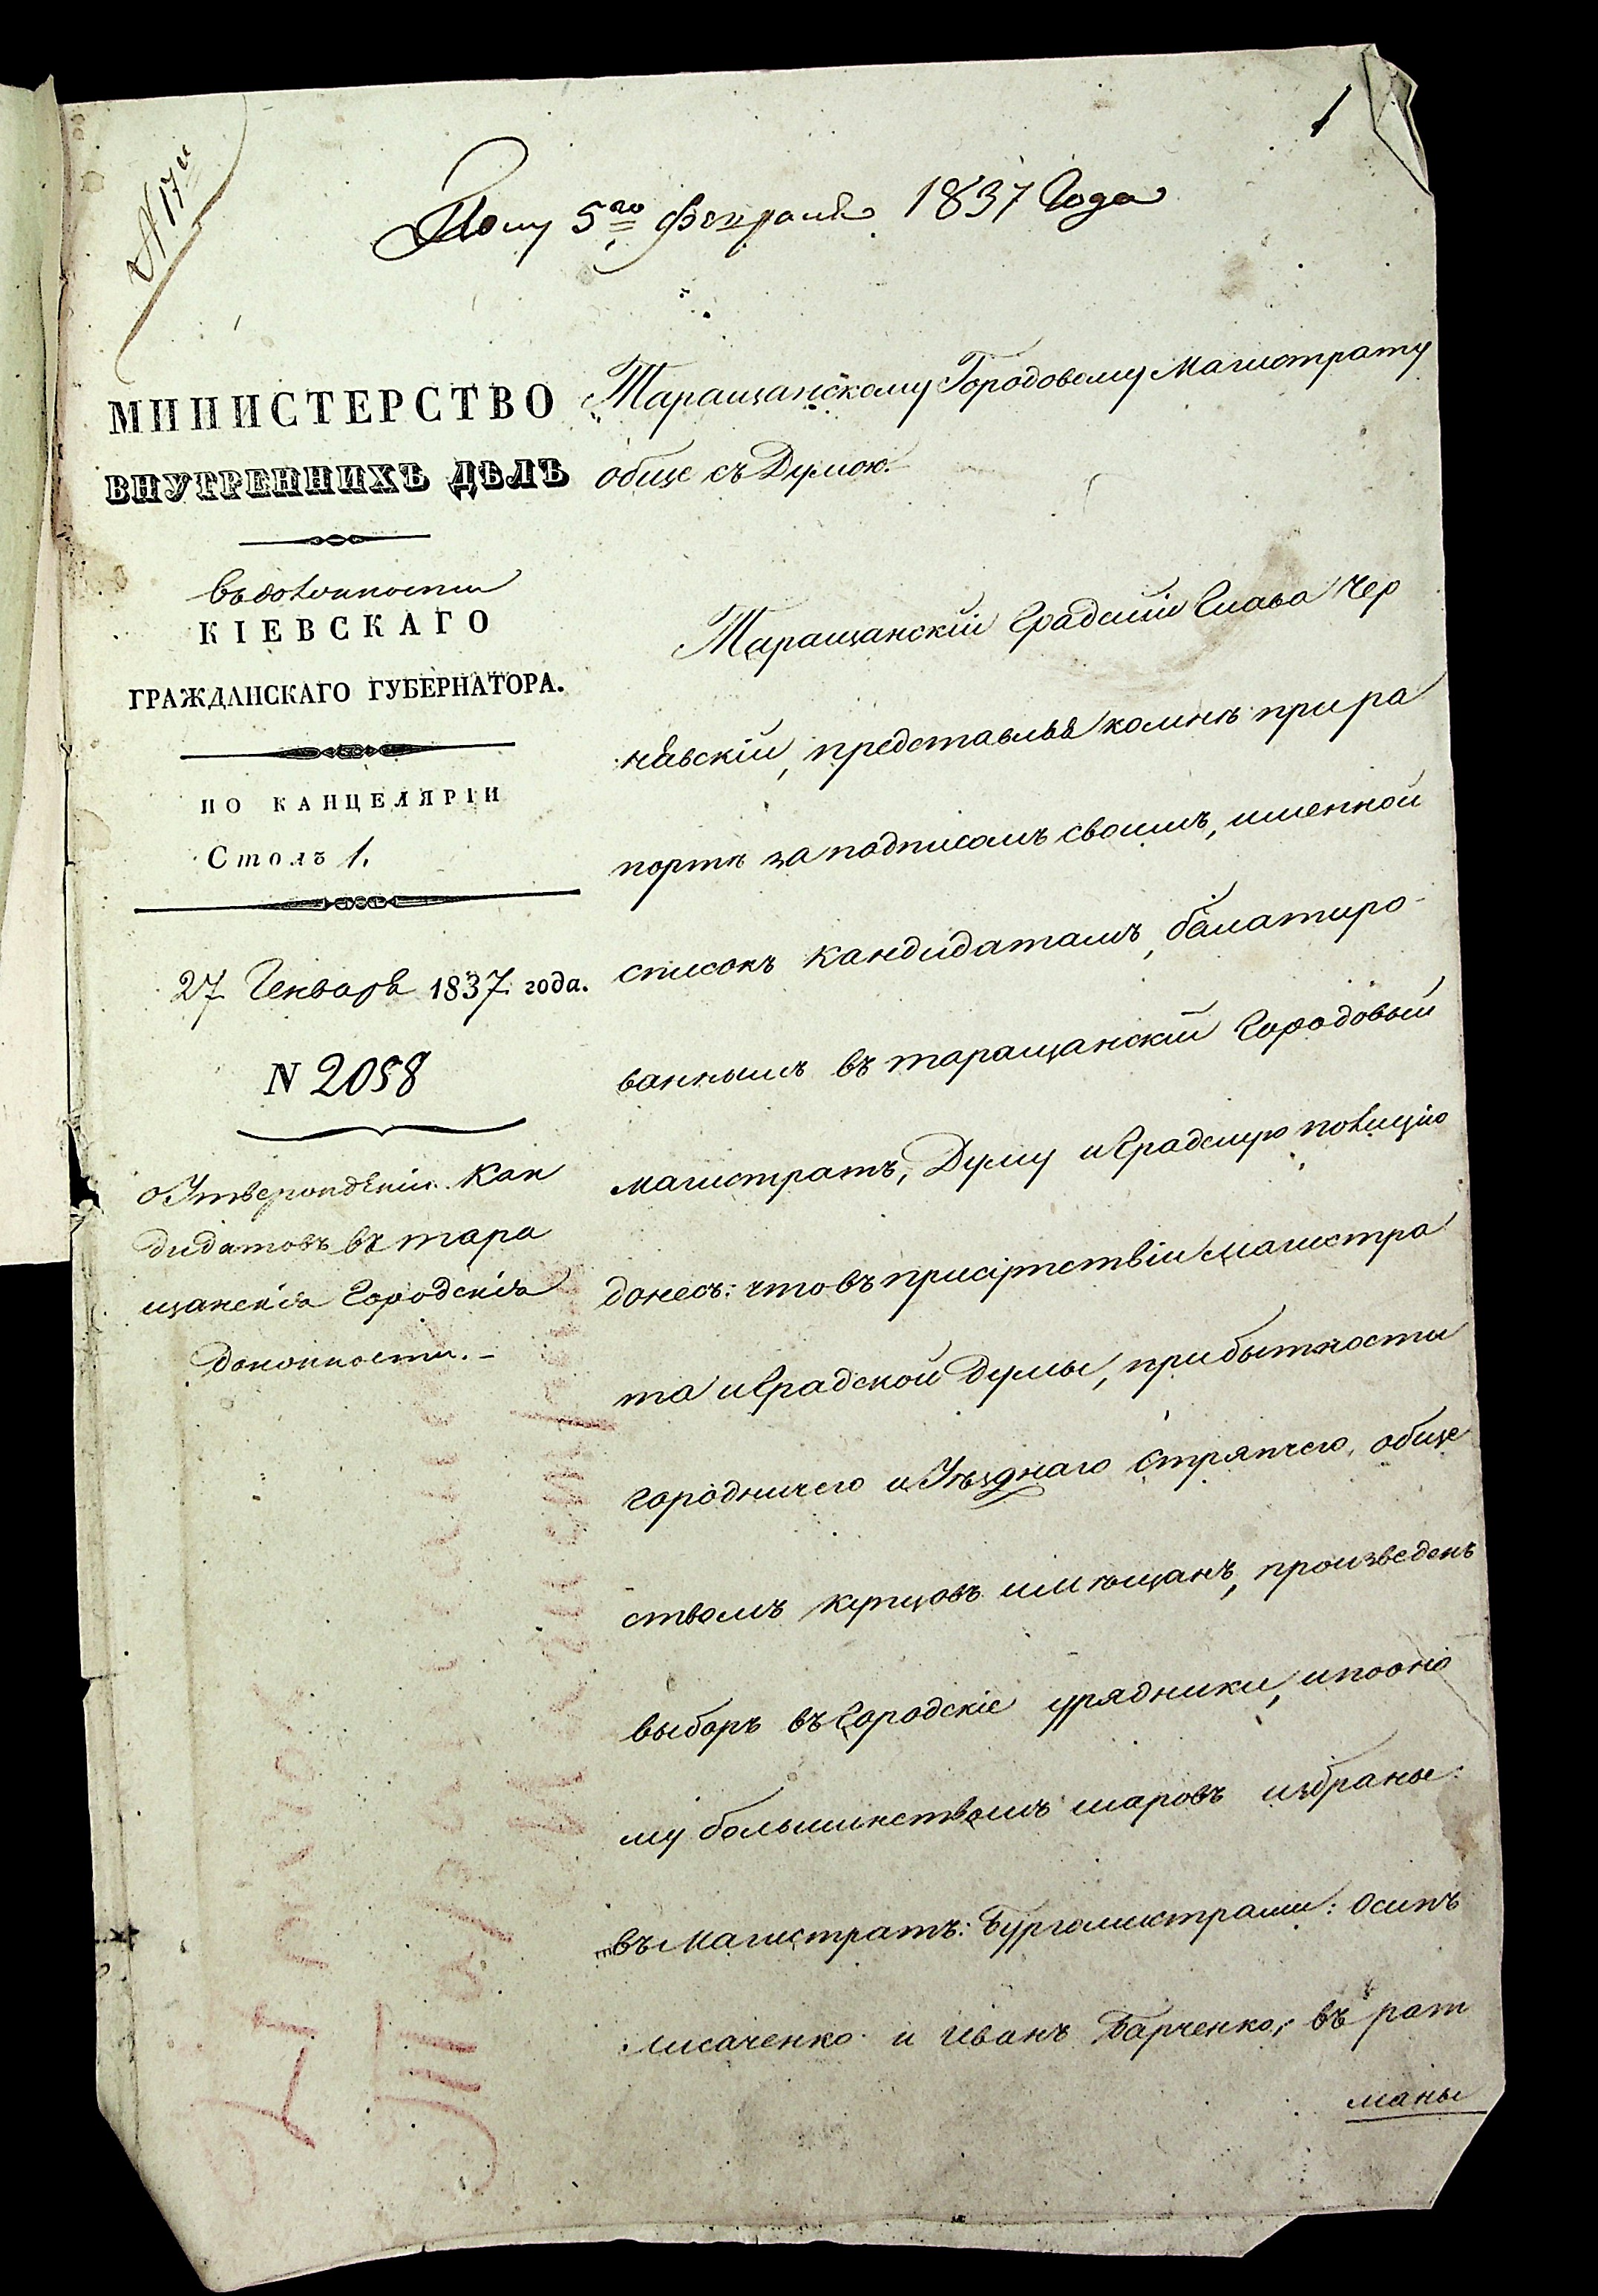 1
N 17й
Полу 5го Февраля 1837 Года
МИНИСТЕРСТВО
ВНУТРЕННИХЪ ДѢЛЪ
въ должности
КІЕВСКАГО
ГРАЖДАНСКАГО ГУБЕРНАТОРА.
ПО КАНЦЕЛЯРІИ
Столъ 1.
27 Генваря 1837. года.
N 2058
о Утвержденіи Кан
дидатовъ въ тара
щанскія Городскія
должности.-
Таращанскому Городовому Магистрату
обще съ Думою.
Таращанскій Градскій Глава Чер
нявскій, представляя ко мнѣ при ра
портѣ за подписомъ своимъ, именной
списокъ кандидатамъ, балатиро-
ваннымъ въ таращанскій Городовый
магистратъ, Думу и Градскую полицію
донесъ: что въ присутствіи магистра
та и Градской Думы, при бытности
городничего и Уѣзднаго Стряпчего, обще
ствомъ купцовъ и мѣщанъ, произведенъ
выборъ въ Городскіе урядники, и по оно
му большинствомъ шаровъ избраны:
въ Магистратъ: Бургомистрами: Осипъ
Лисаченко и Иванъ Барченко, въ рат
маны